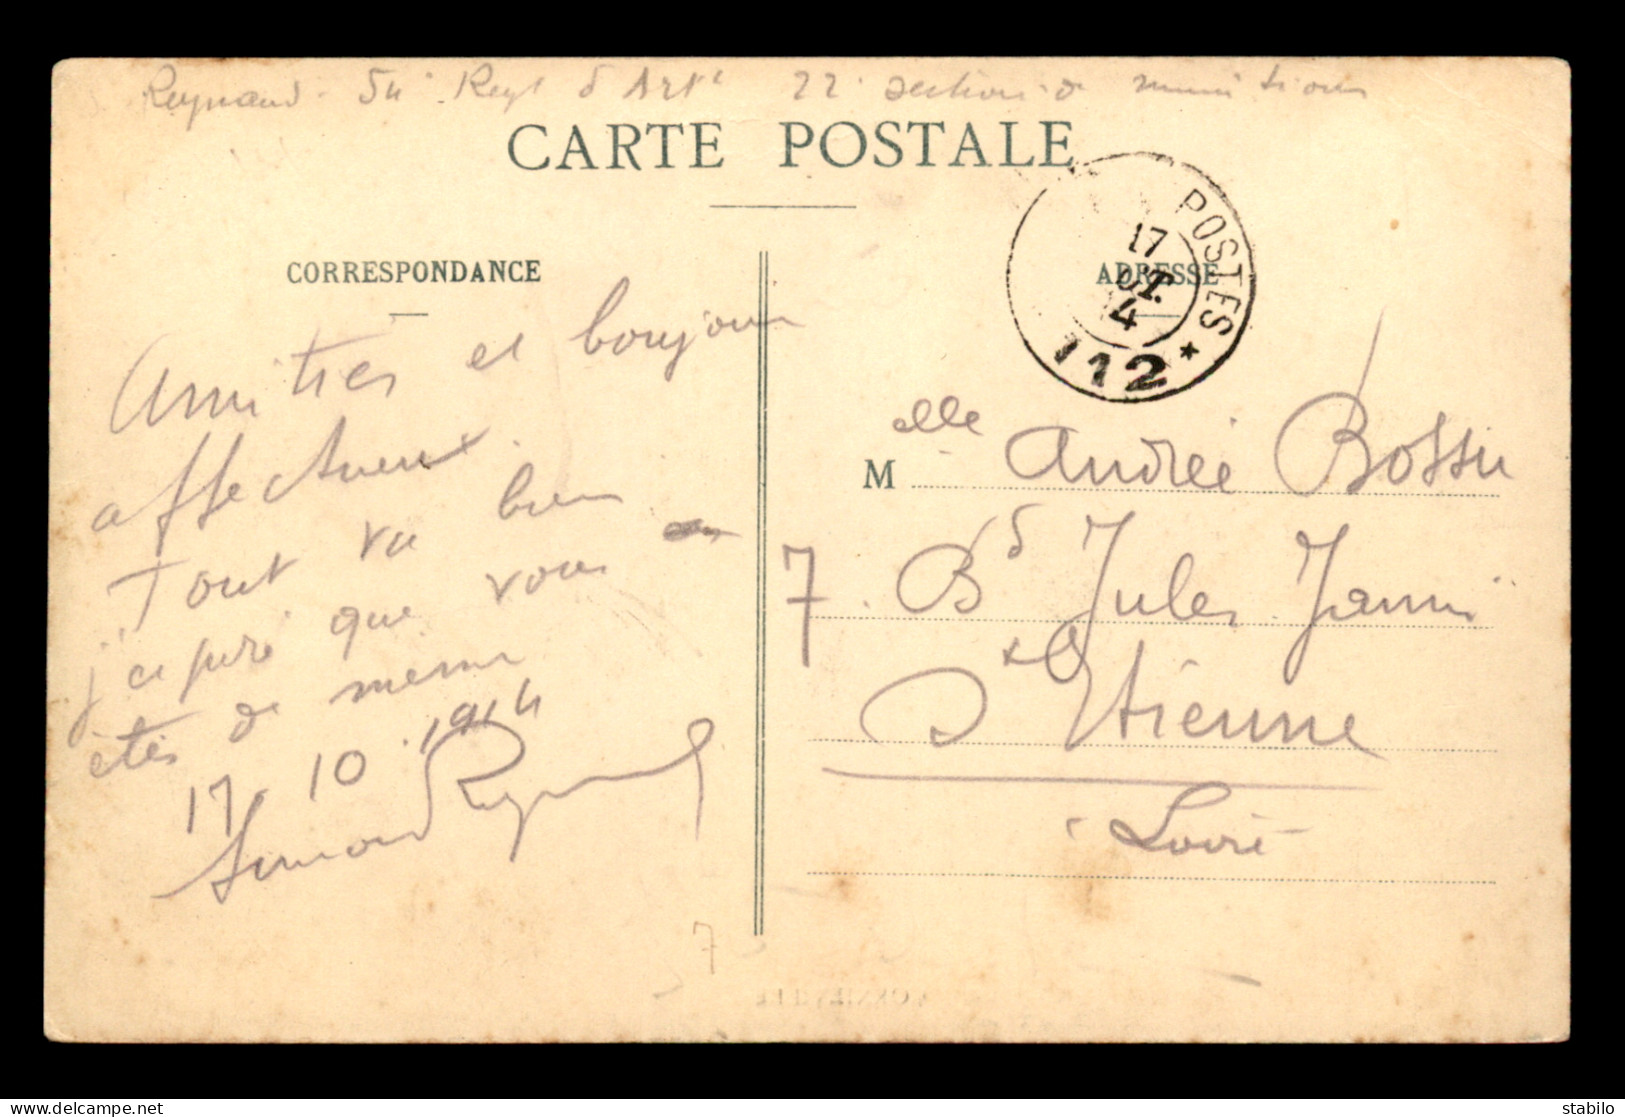 Reynaud - 54e Regt d'Artie 22e section de munitions
CARTE POSTALE
CORRESPONDANCE
ADRESSE
POSTES
17
OT.
4
112 *
Amitiés et bonjour
affectueux.
Tout va bien
j'espère que vous en
êtes de meme
17 - 10 . 1914
Reynaud
Melle Andrée Bossu
7. Bd Jules Janin
St Etienne
Loire
7